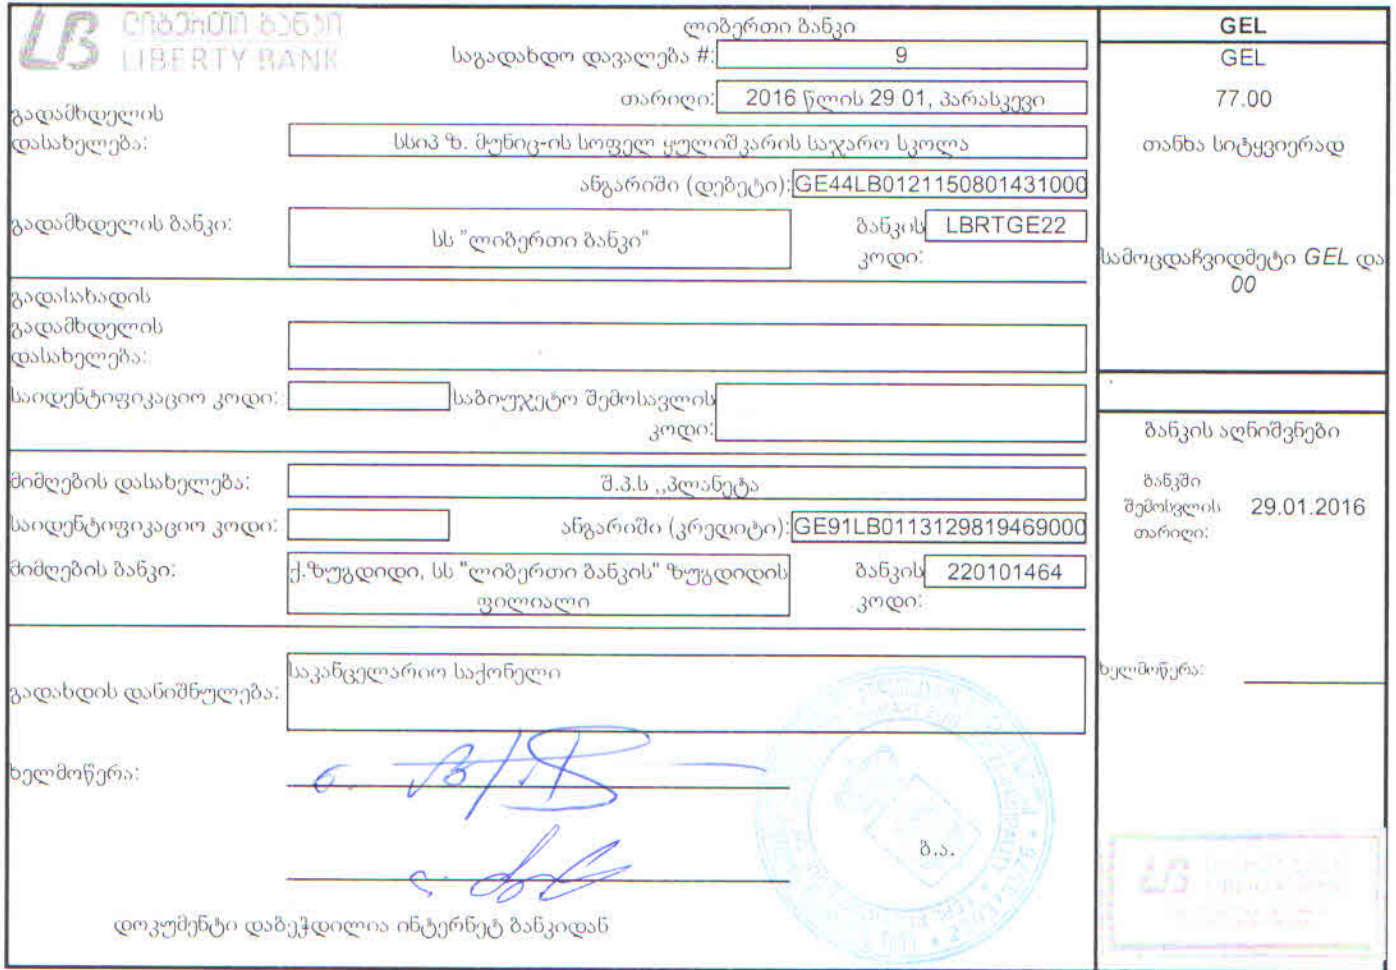 ლიბერთი ბანკი
LIBERTY BANK
ლიბერთი ბანკი
საგადახდო დავალება #: 9
თარიღი: 2016 წლის 29 01, პარასკევი
გადამხდელის
დასახელება: სსიპ ზ. მუნიც-ის სოფელ ყულიშკარის საჯარო სკოლა
ანგარიში (დებეტი): GE44LB0121150801431000
გადამხდელის ბანკი: სს "ლიბერთი ბანკი" ბანკის
კოდი: LBRTGE22
გადასახადის
გადამხდელის
დასახელება:
საიდენტიფიკაციო კოდი: საბიუჯეტო შემოსავლის
კოდი:
მიმღების დასახელება: შ.პ.ს ,,პლანეტა
საიდენტიფიკაციო კოდი: ანგარიში (კრედიტი): GE91LB0113129819469000
მიმღების ბანკი: ქ.ზუგდიდი, სს "ლიბერთი ბანკის" ზუგდიდის
ფილიალი
ბანკის
კოდი: 220101464
საკანცელარიო საქონელი
გადახდის დანიშნულება:
ხელმოწერა:
ბ.ა.
დოკუმენტი დაბეჭდილია ინტერნეტ ბანკიდან
GEL
GEL
77.00
თანხა სიტყვიერად
სამოცდაჩვიდმეტი GEL და
00
ბანკის აღნიშვნები
ბანკში
შემოსვლის
თარიღი: 29.01.2016
ხელმოწერა: